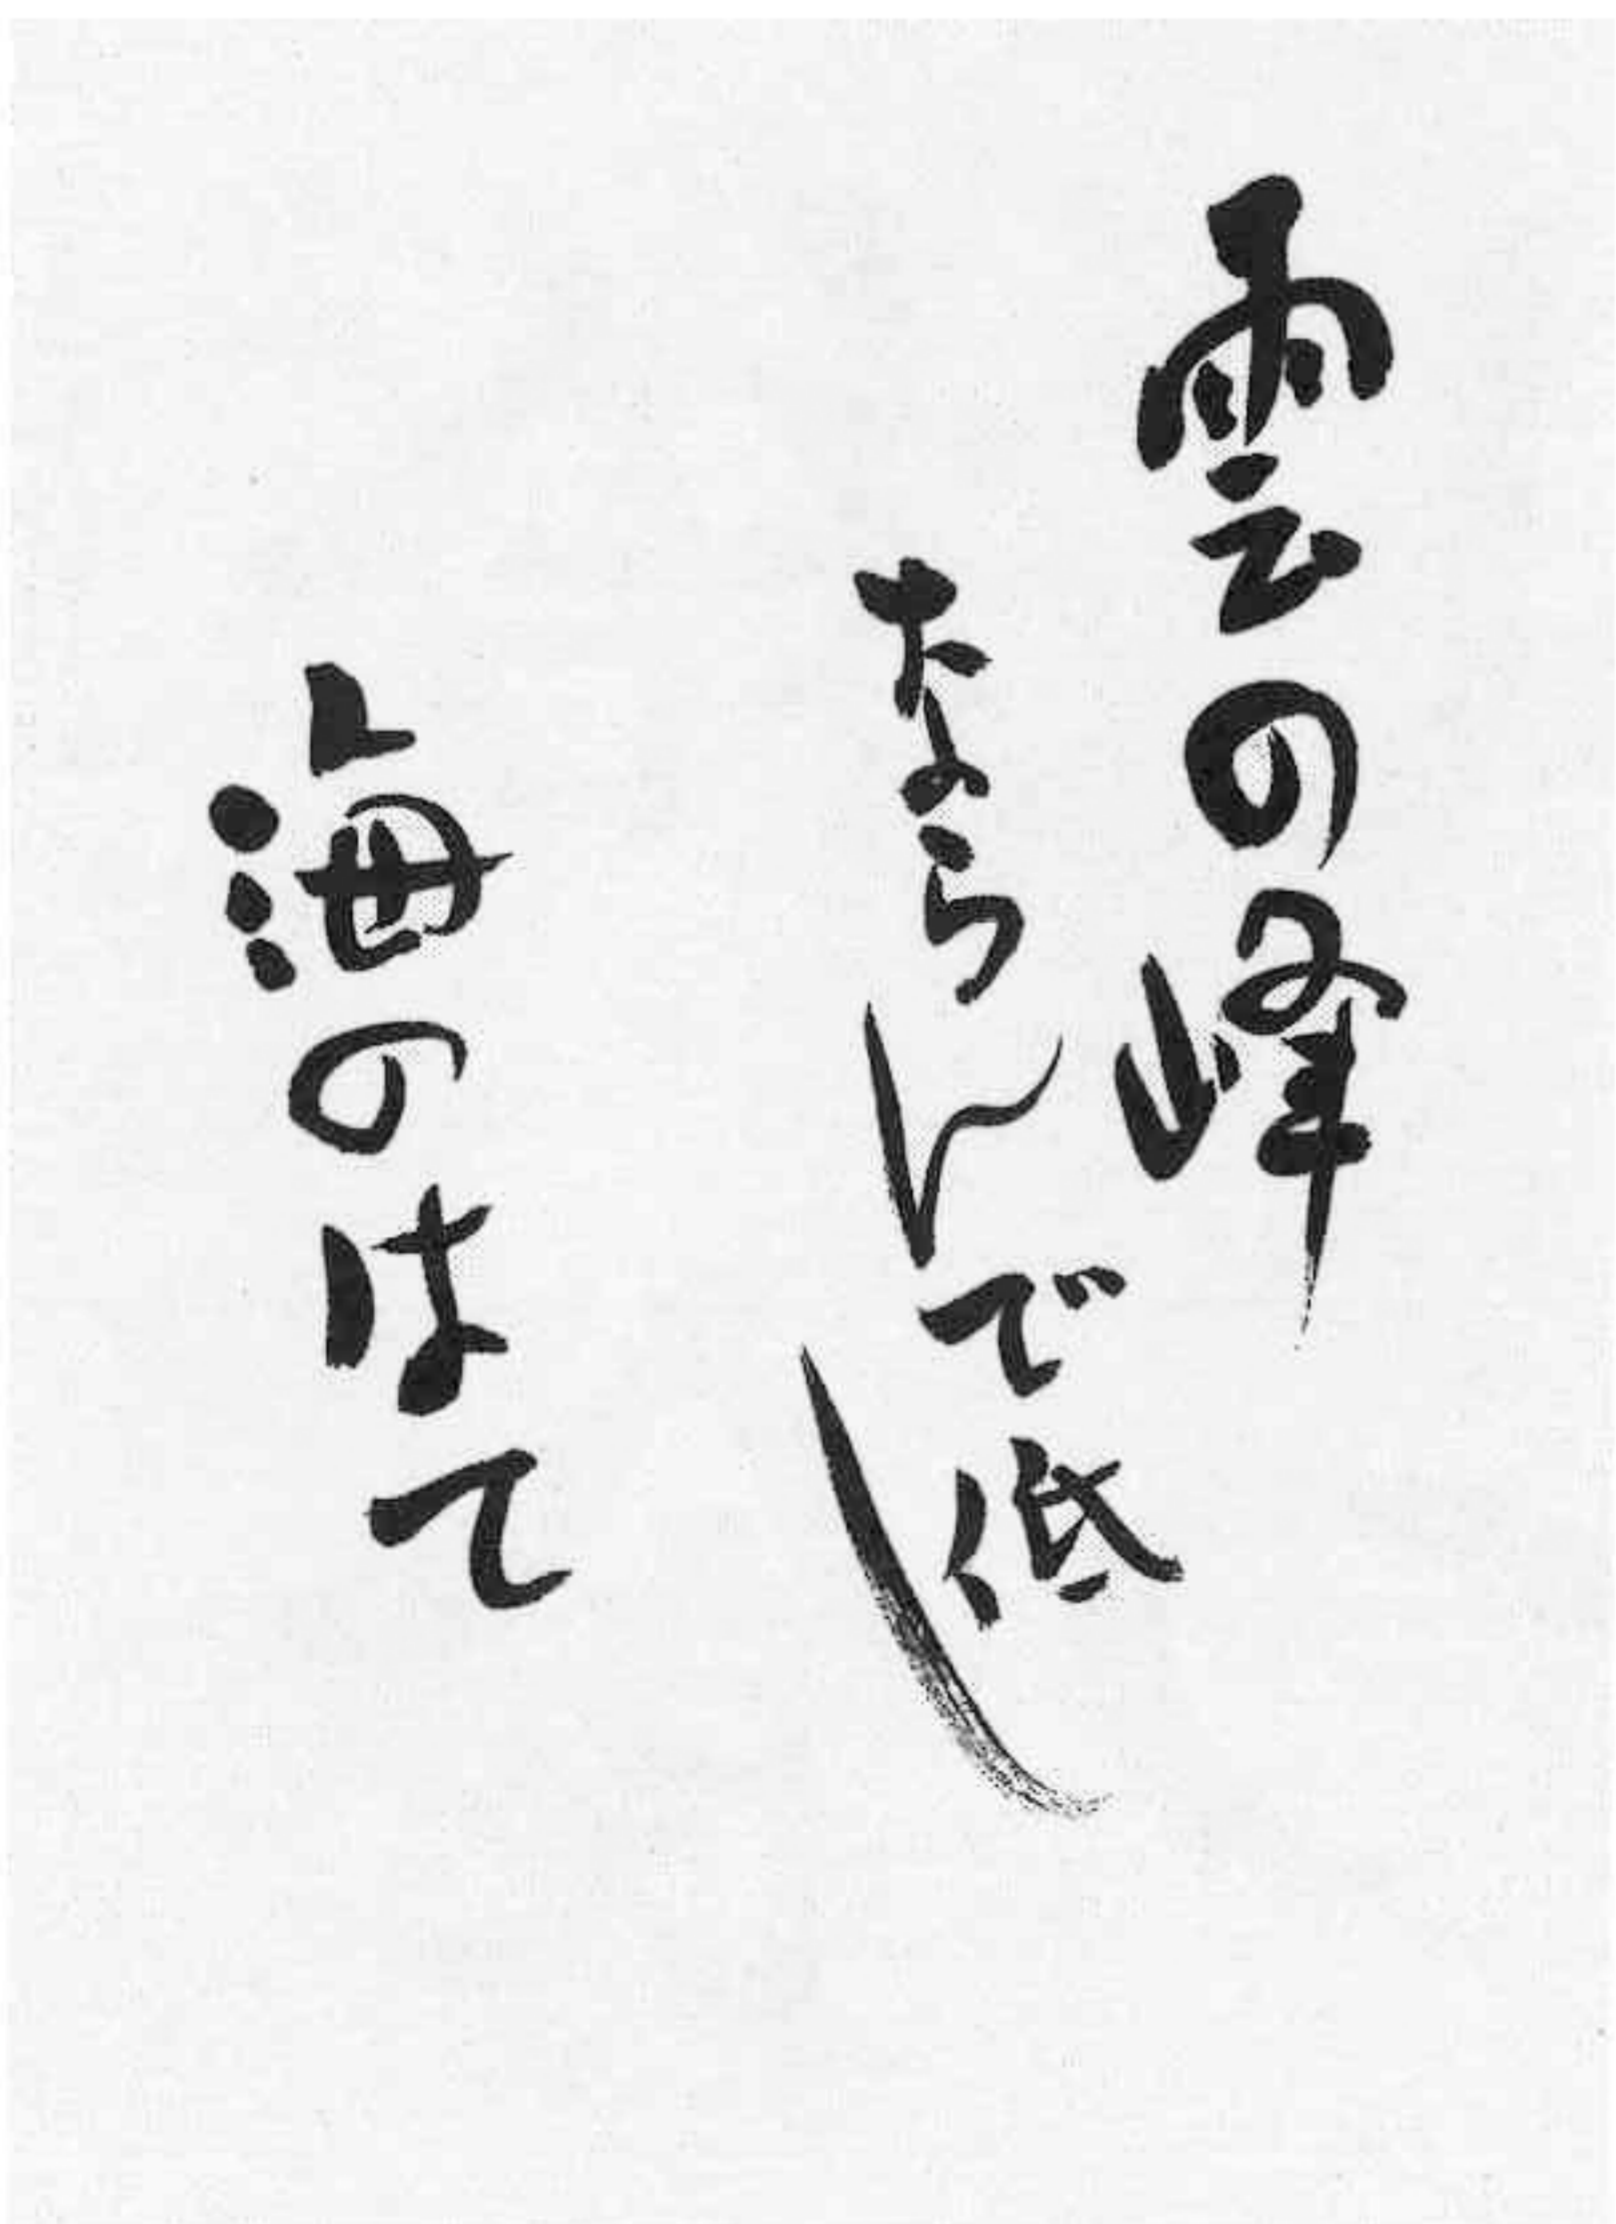 雲の峰
ならんで低し
海のはて